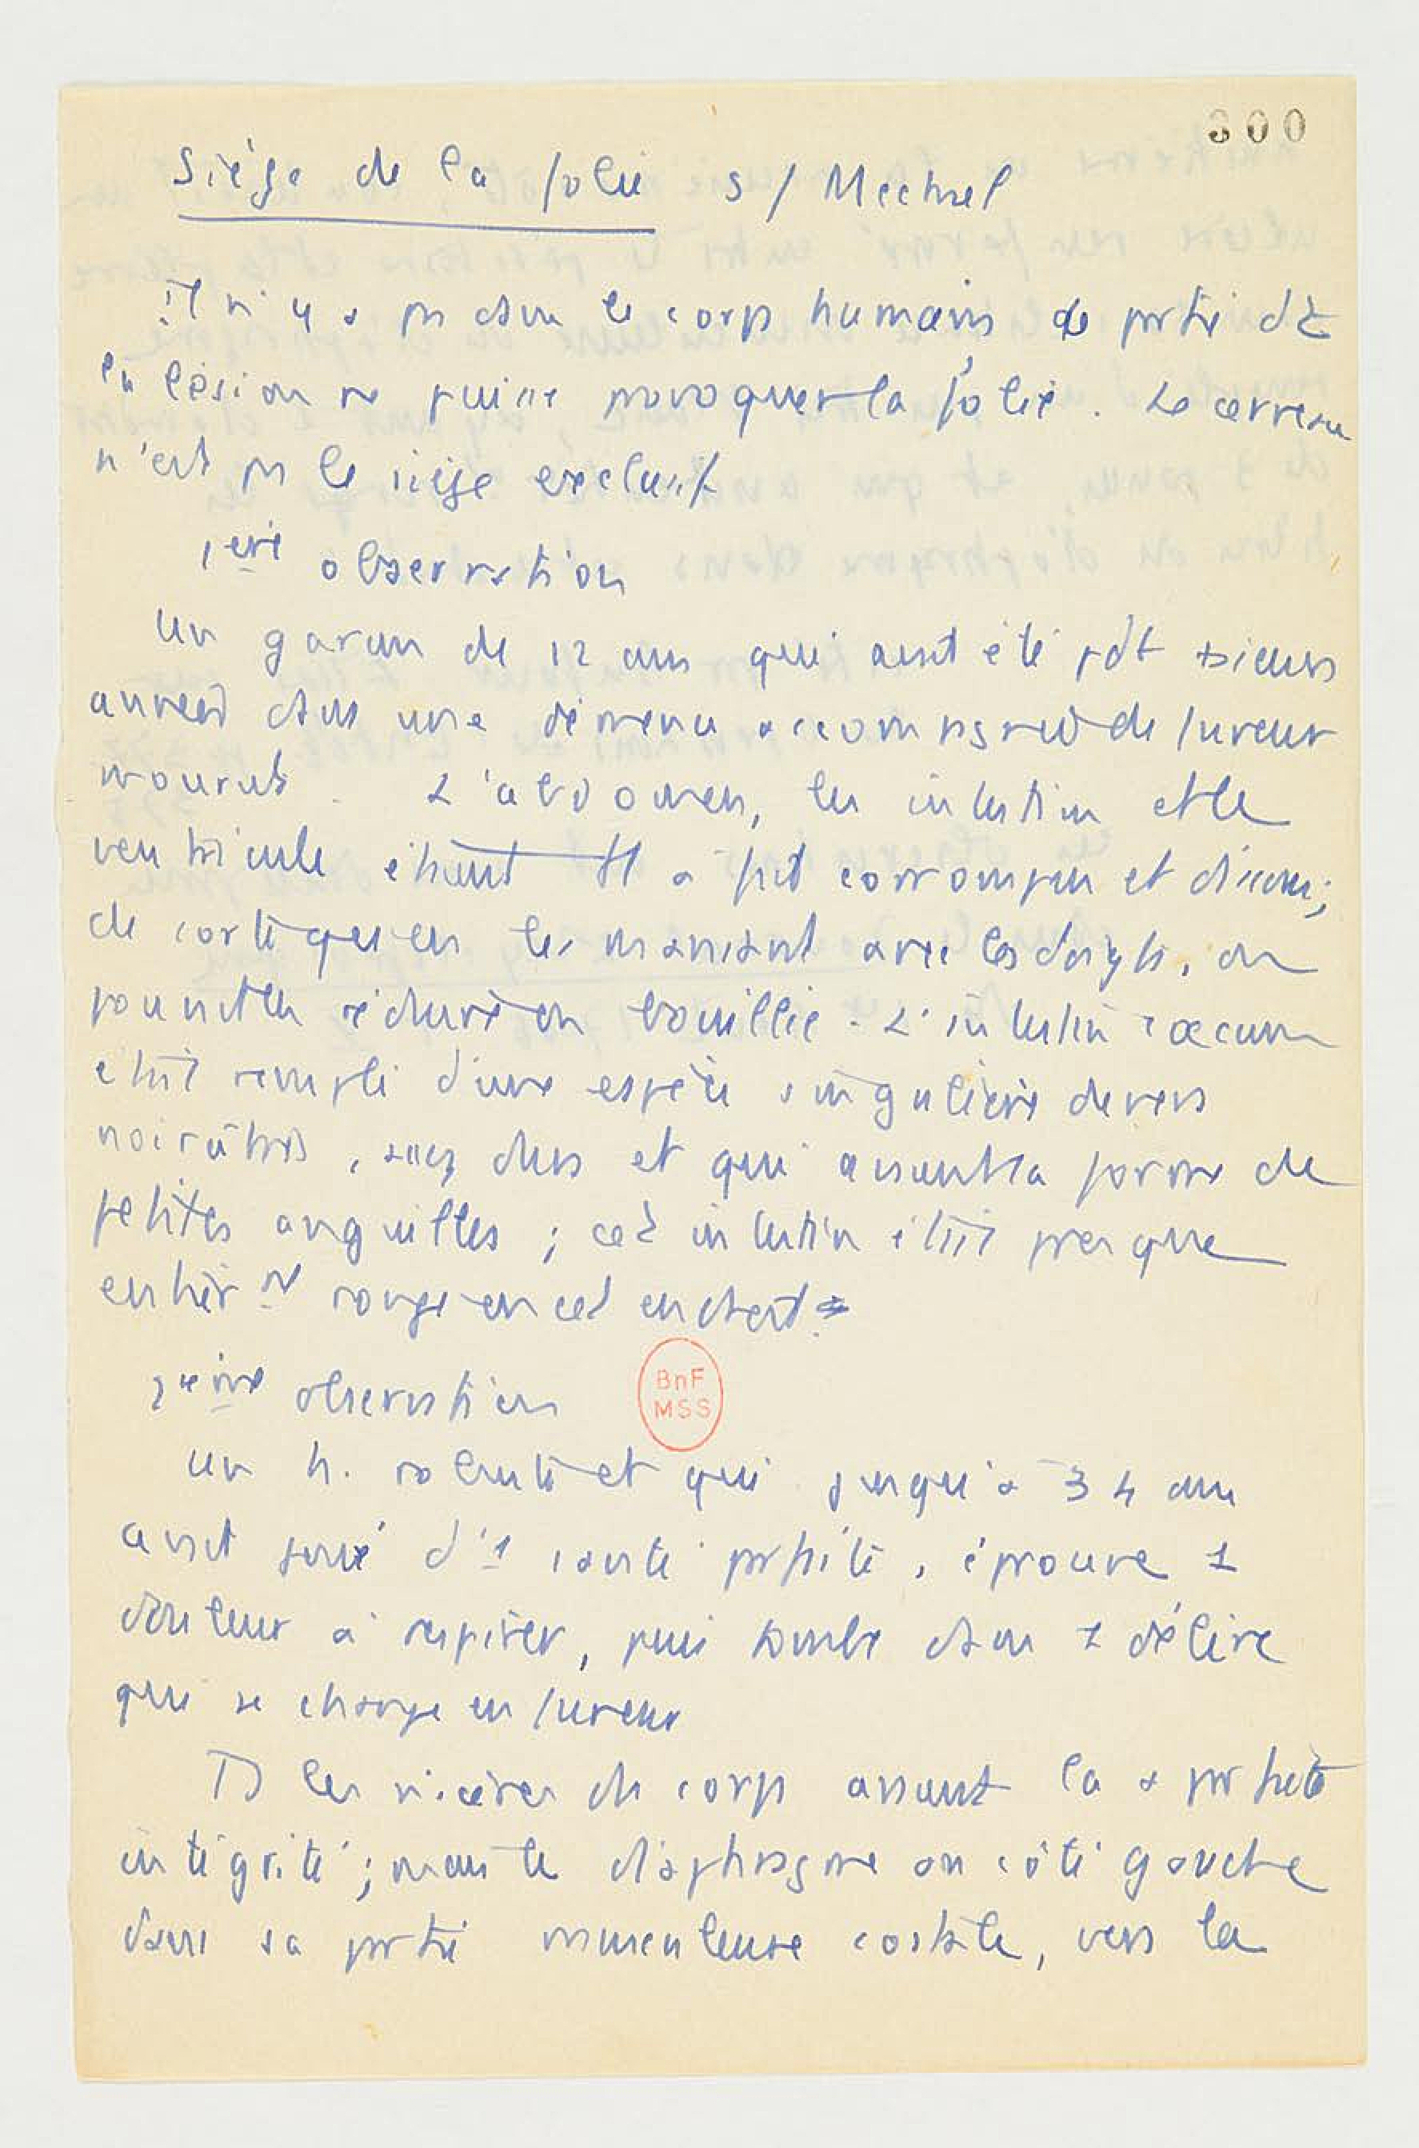 300
Siège de la folie s/ Meckel
Il n'y a pas dans le corps humain de partie dt
la lésion ne puisse provoquer la folie. Le cerveau
n'est pas le siège exclusif
1ère observation
Un garçon de 12 ans qui avait été pdt +sieurs
années dans une démence accompagnée de fureur
mourut. L'abdomen, les intestins et le
ventricule étaient tt à fait corrompus et dissous;
de sorte qu'en les maniant avec les doigts, on
pouvait les réduire en bouillie. L'intestin caecum
était rempli d'une espèce singulière de vers
noirâtres, assez durs et qui avaient la forme de
petites anguilles; cet intestin était presque
entièrnt rongé en cet endroit
2ème observation
un h. robuste et qui jusqu'à 34 ans
avait joui d'1 santé parfaite, éprouve 1
douleur à respirer, puis tombe dans 1 délire
qui se change en fureur
Ts les viscères du corps avaient la + parfaite
intégrité; mais le diaphragme au côté gauche
dans sa partie musculeuse costale, vers la
BnF
MSS